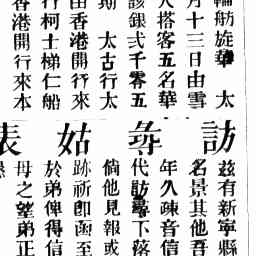 輪舫旋華　太
月十三日由雪
人搭客五名華
該銀弍千零五
期　太古行太
由香港開行來
行柯士梯仁船
香港開行來本
訪尋姑表
茲有新寧縣
名景其他吾
年久疎音信
代訪尋下落
倘他見報或
跡祈即函至
於弟俾得信
母之望弟正